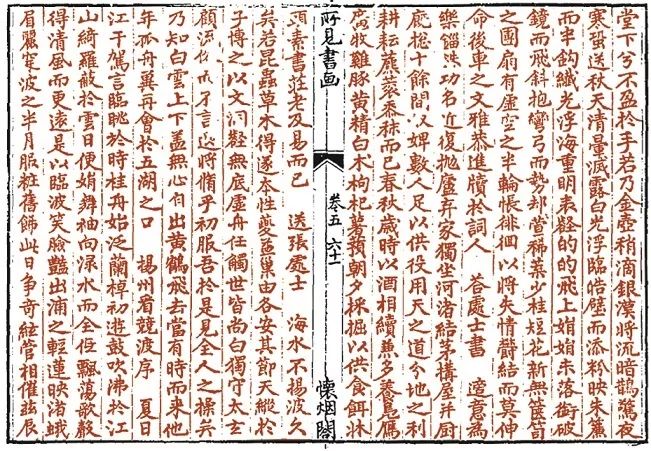 堂下兮不盈於手若乃金壺稍滴銀漢將流暗鵲驚夜
寒蛩送秋天清毫滅露白光浮臨皓壁而添粉映朱簾
而半鈎纖光浮海重明表的的飛上娟娟未落銜破
鏡而飛斜抱彎弓而勢却萱稀葉少桂短花新無篋笥
之團扇有虛空之半輪悵徘徊以將失情鬱結而莫伸
命後車之文雅恭進牘於詞人　答處士書　適意為
樂錙銖功名近後抛廬弃家獨坐河渚結茅構屋并厨
廐捴十餘間以婢數人足以供役用天之道分地之利
耕耘蔍蓘黍秫而已春秋歲時以酒相續兼多養鳧鴈
廣牧雞豚黄精白术枸杞薯蕷朝夕採掘以供食餌牀
所見書画　卷五　六十一　懷烟閣
頭素書莊老及易而已　送張處士　海水不揚波久
矣若昆蟲草木得遂本性夔益巢由各安其節天縱於
子博之以文洞豁無底虛舟任觸世皆尚白獨守太玄
顧流俗而不言將脩乎初服吾於是見全人之操矣
乃知白雲上下蓋無心自出黄鶴飛去當有時而来他
年孤舟冀再會於五湖之口　揚州看競渡序　夏日
江干駕言臨眺於時桂舟始泛蘭棹初遊鼓吹沸於江
山綺羅蔽於雲日便娟舞袖向淥水而全低飄蕩歌聲
得清風而更遠是以臨波笑臉艷出浦之輕蓮映渚蛾
眉麗穿波之半月服粧舊飾此日争奇絃管相催兹辰